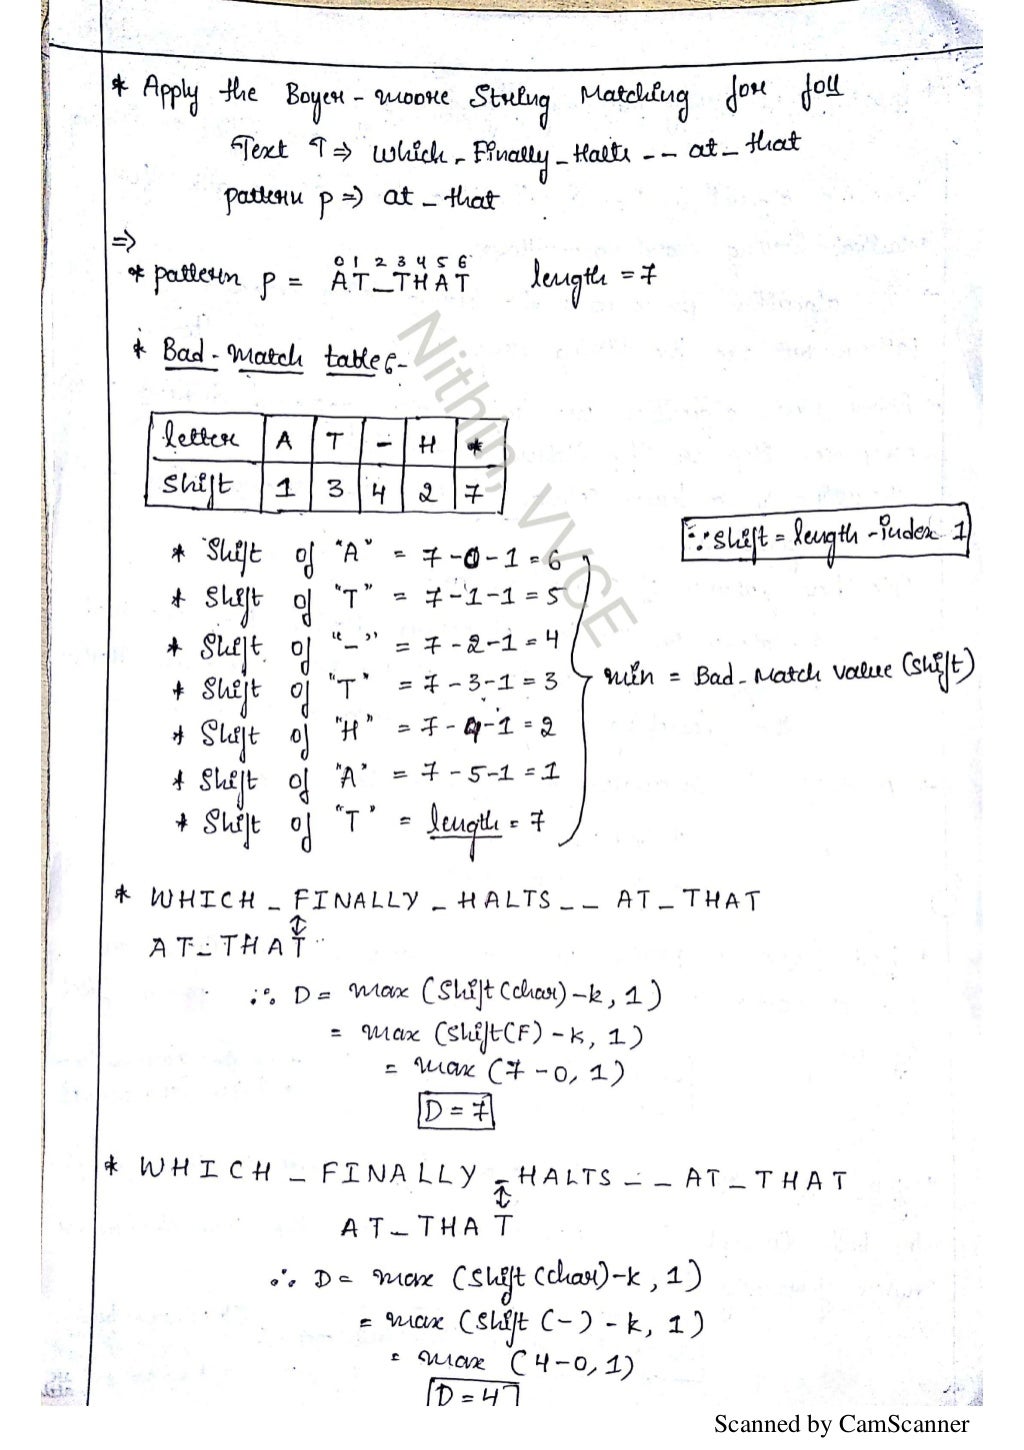 * Apply the Boyer - Moore String Matching for foll
Text T ⇒ which - Finally - Halts - - at - that
pattern p ⇒ at - that
⇒
0 1 2 3 4 5 6
* pattern p = AT_THAT length = 7
* Bad - Match table :-
letter A T - H *
Shift 1 3 4 2 7
∵ shift = length - index 1
* Shift of "A" = 7 - 0 - 1 = 6
* Shift of "T" = 7 - 1 - 1 = 5
* Shift of "_" = 7 - 2 - 1 = 4
* Shift of "T" = 7 - 3 - 1 = 3
min = Bad - Match value (shift)
* Shift of "H" = 7 - 4 - 1 = 2
* Shift of "A" = 7 - 5 - 1 = 1
* Shift of "T" = length = 7
* WHICH _ FINALLY _ HALTS _ _ AT _ THAT
AT _ THAT
∴ D = max (Shift (char) - k, 1)
= max (Shift (F) - k, 1)
= max (7 - 0, 1)
D = 7
* WHICH _ FINALLY _ HALTS _ _ AT _ THAT
AT _ THAT
∴ D = max (Shift (char) - k, 1)
= max (Shift (-) - k, 1)
= max (4 - 0, 1)
D = 4
Nithin, VVCE
Scanned by CamScanner